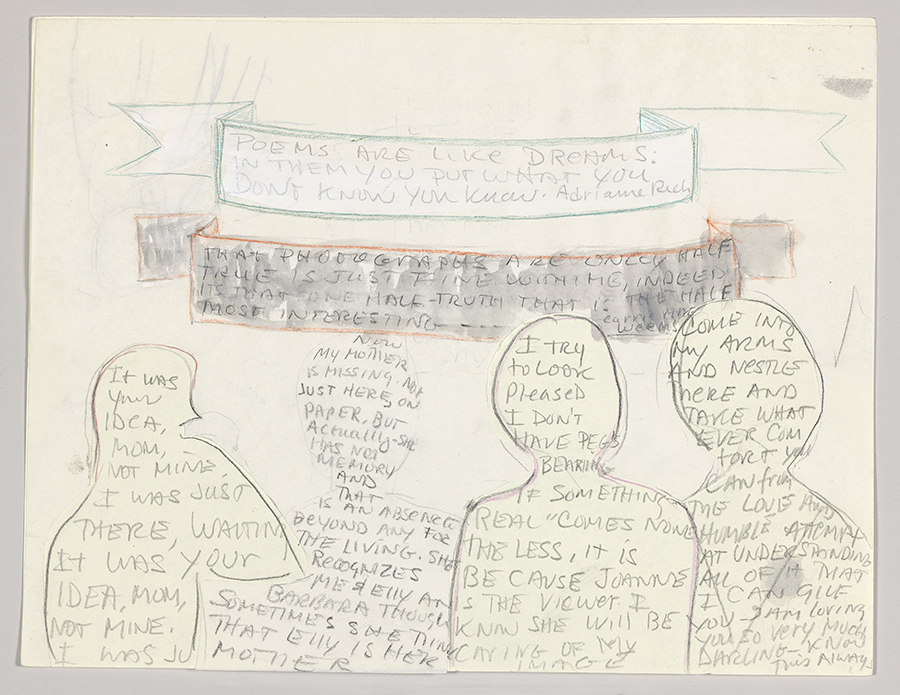 POEMS ARE LIKE DREAMS:
IN THEM YOU PUT WHAT YOU
DON'T KNOW YOU KNOW. Adrianne Rich
THAT PHOTOGRAPHS ARE ONLY HALF
TRUE IS JUST FINE WITH ME, INDEED
ITS THAT ONE HALF-TRUTH THAT IS THE HALF
MOST INTERESTING
carrie mae
weems
IT WAS
YOUR
IDEA,
MOM,
NOT MINE
I WAS JUST
THERE, WAITIN
IT WAS YOUR
IDEA, MOM,
NOT MINE.
I WAS JU
NOW
MY MOTHER
IS MISSING. NOT
JUST HERE, ON
PAPER, BUT
ACTUALLY-SHE
HAS NO
MEMORY
AND
THAT
IS AN ABSENCE
BEYOND ANY FOR
THE LIVING. SHE
RECOGNIZES
ME & ELLY AN
BARBARA THOUGH
SOMETIMES SHE THIN
THAT ELLY IS HER
MOTHER
I TRY
to LOOK
pleased
I DON'T
HAVE PEG'S
BEARING
IF SOMETHING
REAL "COMES NONE
THE LESS, IT IS
BE CAUSE JOANNE
IS THE VIEWER. I
KNOW SHE WILL BE
CARING OF MY
IMAGE
COME INTO
My ARMS
AND NESTLE
here AND
TAKE WHAT
EVER COM
fort you
CAN from
THE LOVE AND
HUMBLE ATTEMPT
AT UNDERSTANDING
ALL OF IT THAT
I CAN GIVE
YOU-I AM loving
you so very much
DARLING-KNOW
this Always